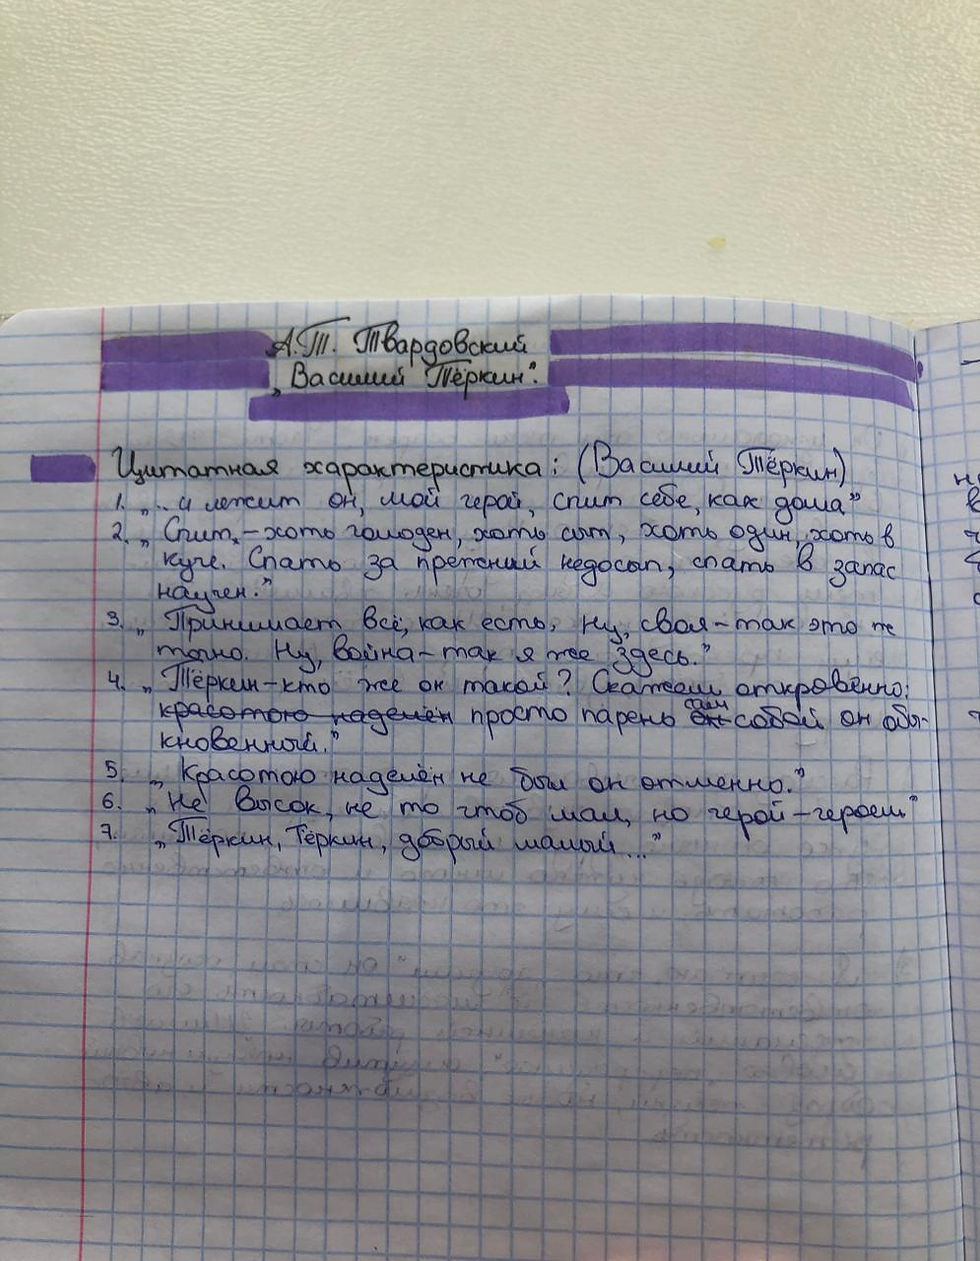 А.Т. Твардовский
„Василий Тёркин".
Цитатная характеристика: (Василий Тёркин)
1. „... и лежит он, мой герой, спит себе, как дома"
2. „Спит, – хоть голоден, хоть сыт, хоть один, хоть в
куче. Спать за прежний недосып, спать в запас
научен."
3. „Принимает всё, как есть. Ну, своя – так это же
точно. Ну, война – так я же здесь."
4. „Тёркин – кто же он такой? Скажем откровенно:
красотою наделён просто парень сам собой он обы-
кновенный."
5. „Красотою наделён не был он отменно."
6. „Не высок, не то чтоб мал, но герой – героем"
7. „Тёркин, Тёркин, добрый малый..."